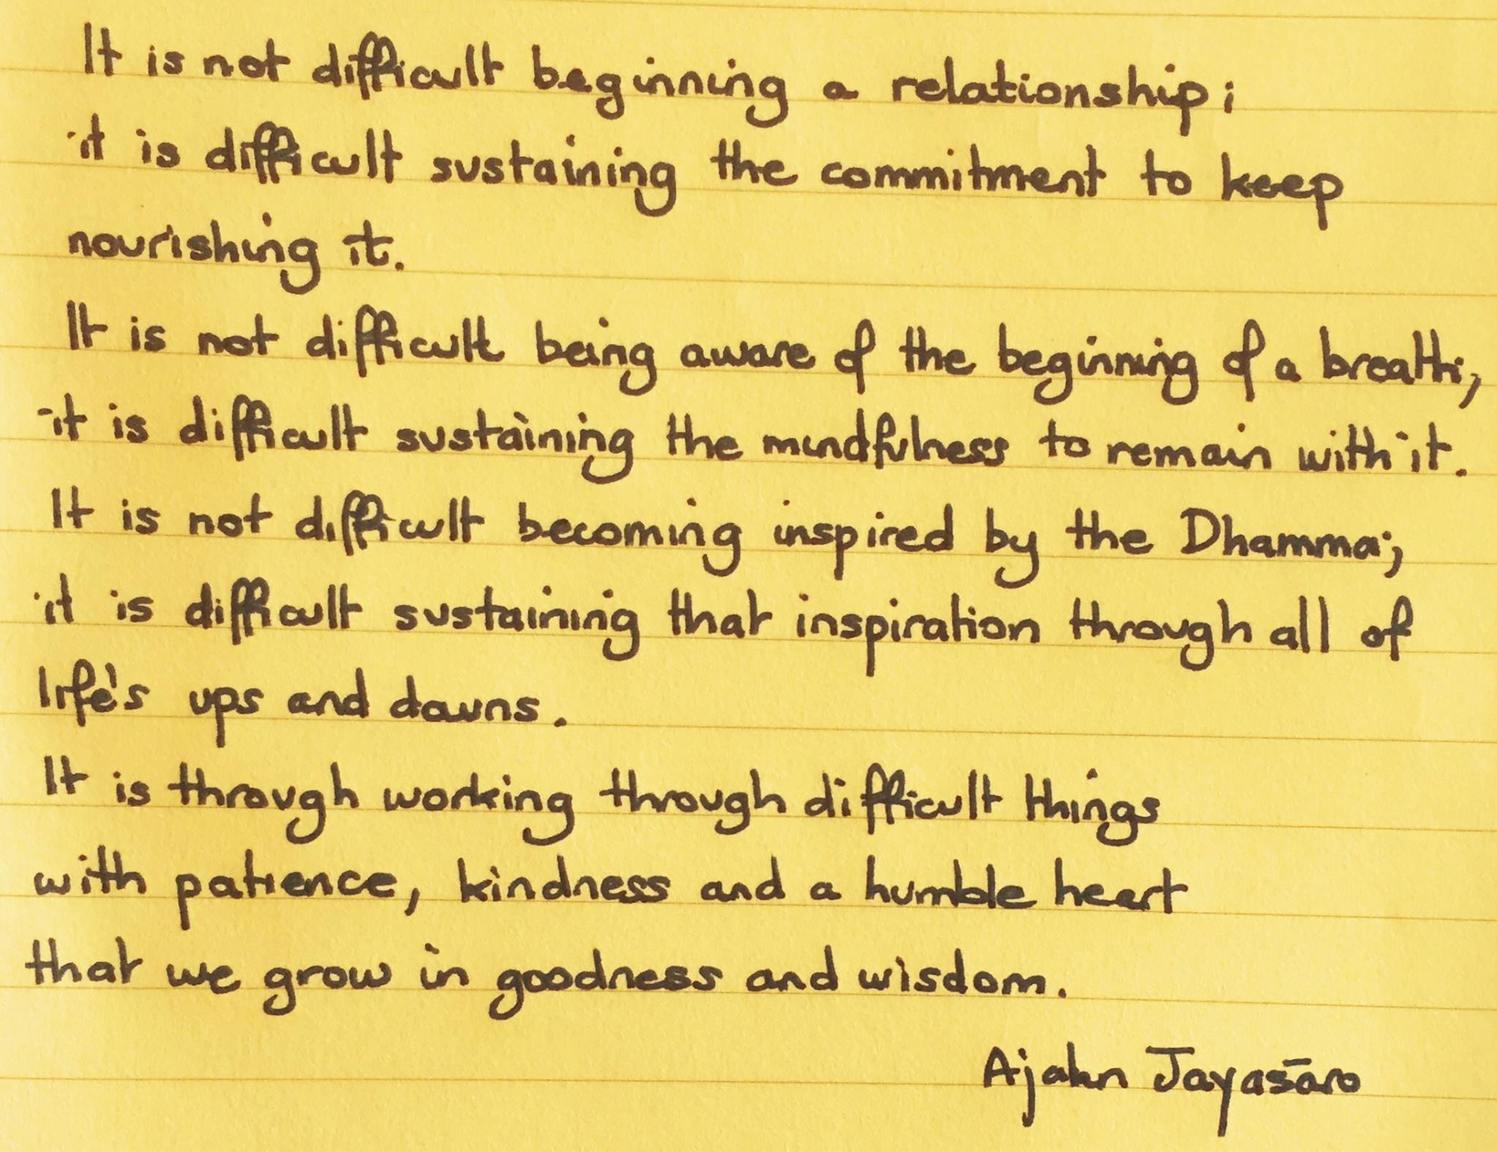 It is not difficult beginning a relationship;
it is difficult sustaining the commitment to keep
nourishing it.
It is not difficult being aware of the beginning of a breath;
it is difficult sustaining the mindfulness to remain with it.
It is not difficult becoming inspired by the Dhamma;
it is difficult sustaining that inspiration through all of
life's ups and downs.
It is through working through difficult things
with patience, kindness and a humble heart
that we grow in goodness and wisdom.
Ajahn Jayasāro